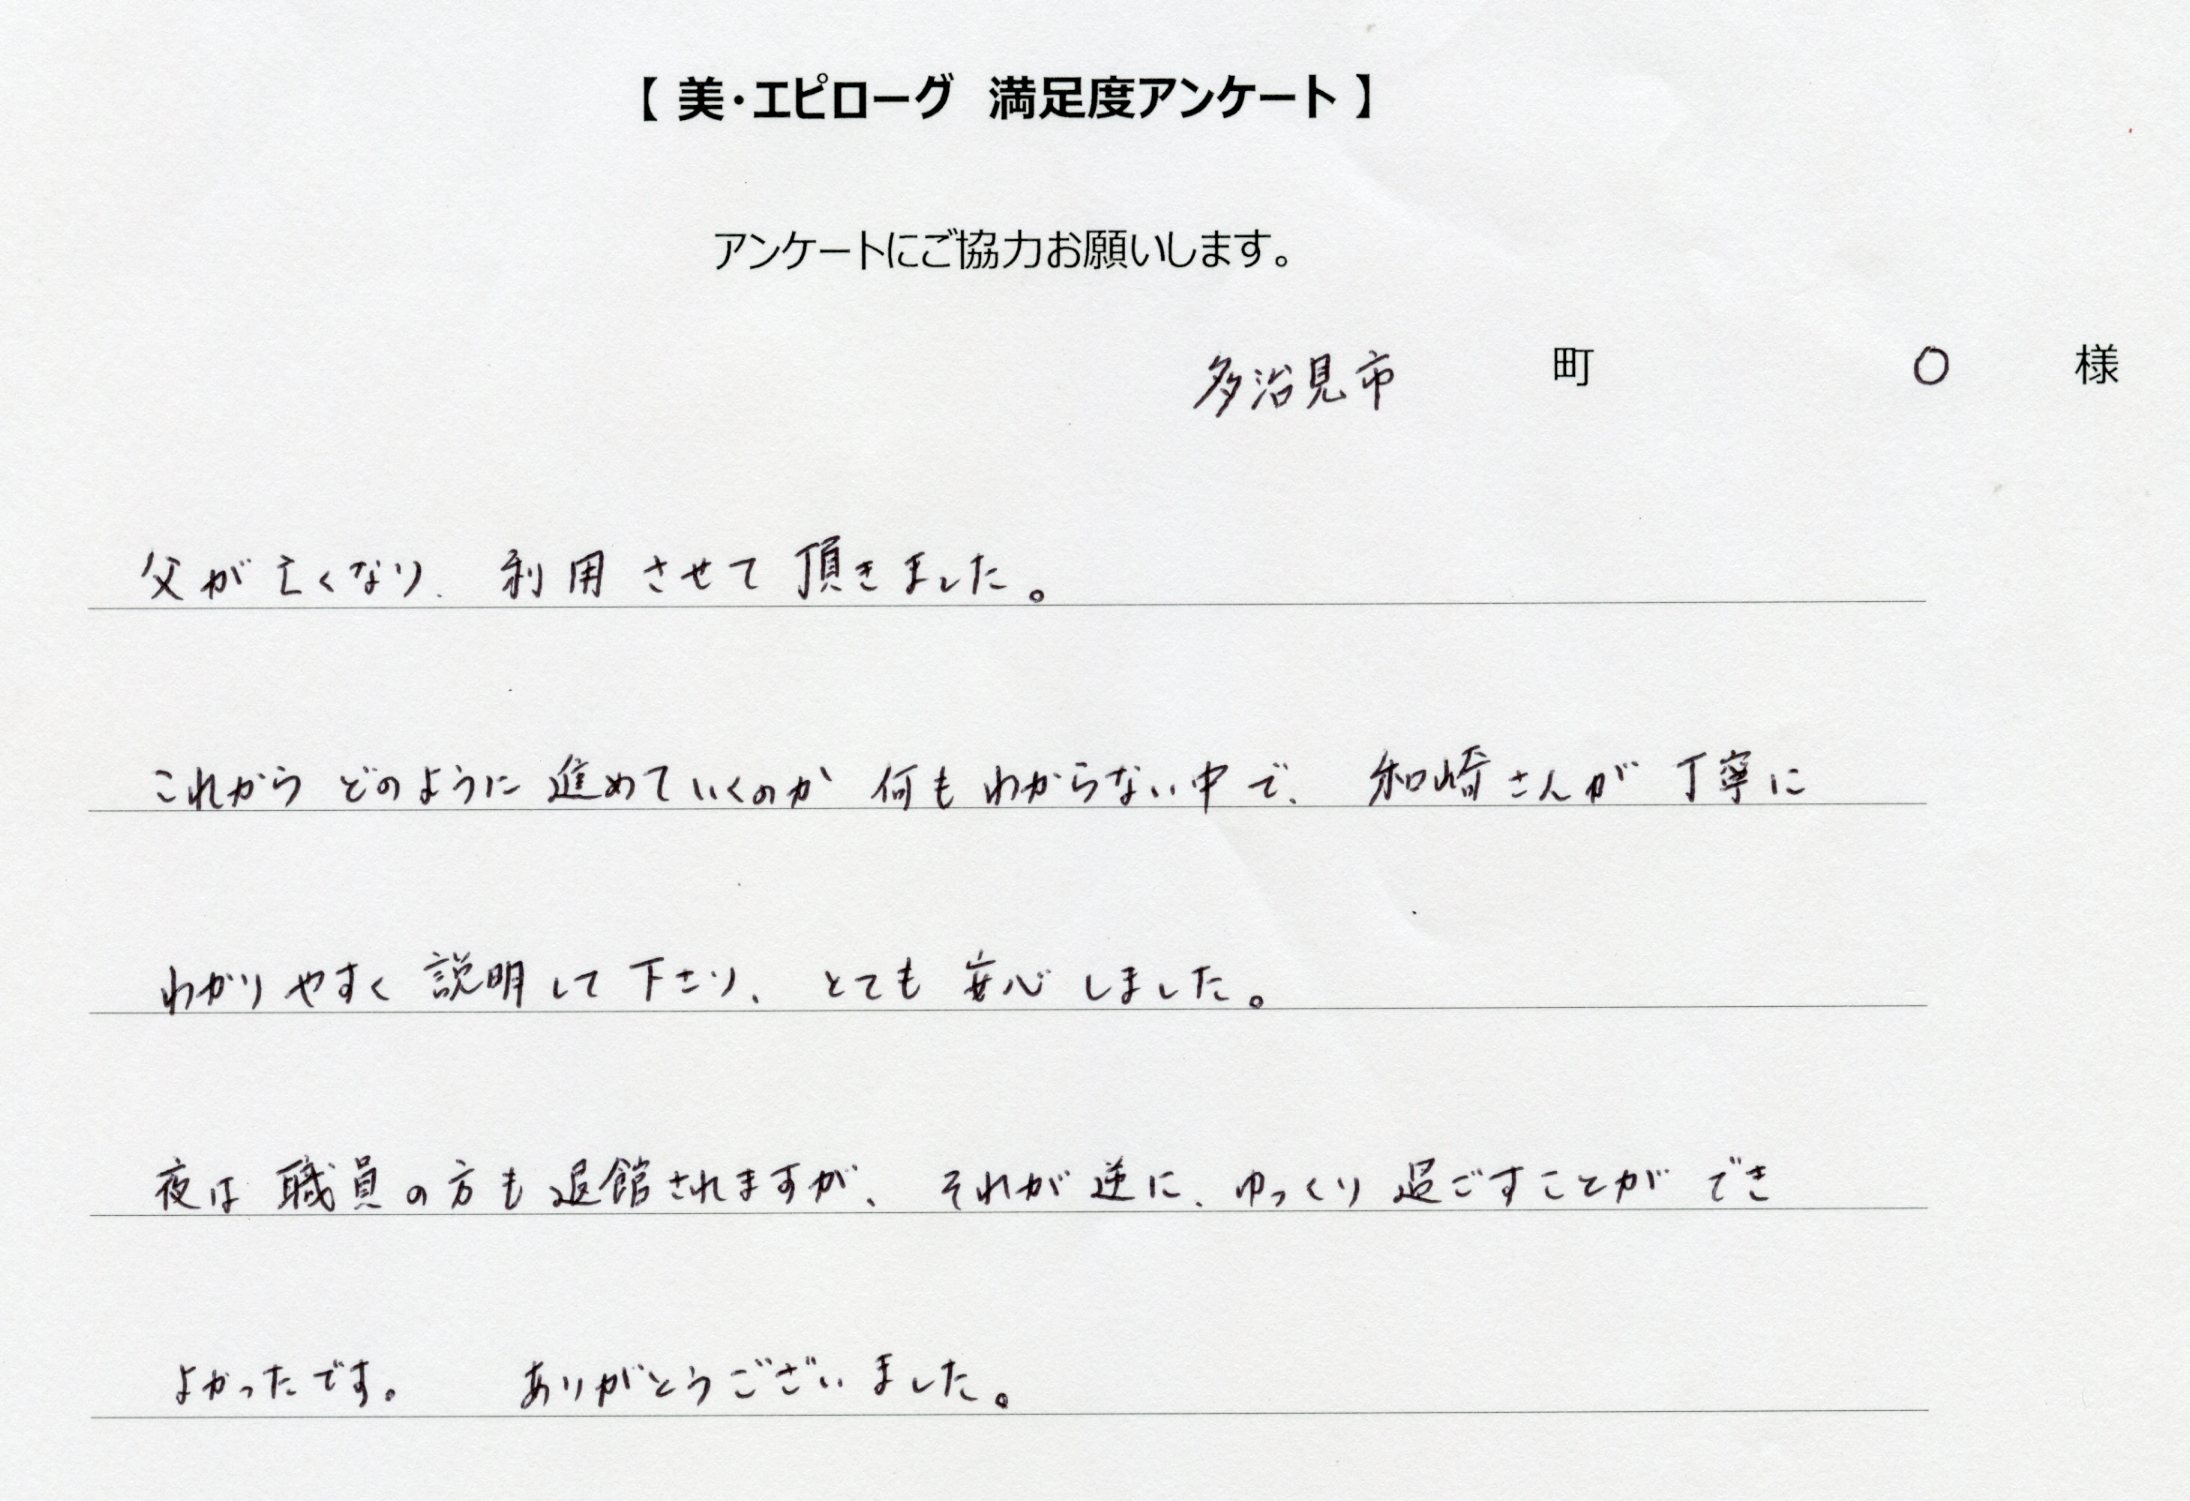 【 美・エピローグ 満足度アンケート 】
アンケートにご協力お願いします。
多治見市 町 〇 様
父が亡くなり、利用させて頂きました。
これからどのように進めていくのか何もわからない中で、和崎さんが丁寧に
わかりやすく説明して下さり、とても安心しました。
夜は職員の方も退館されますが、それが逆に、ゆっくり過ごすことができ
よかったです。 ありがとうございました。